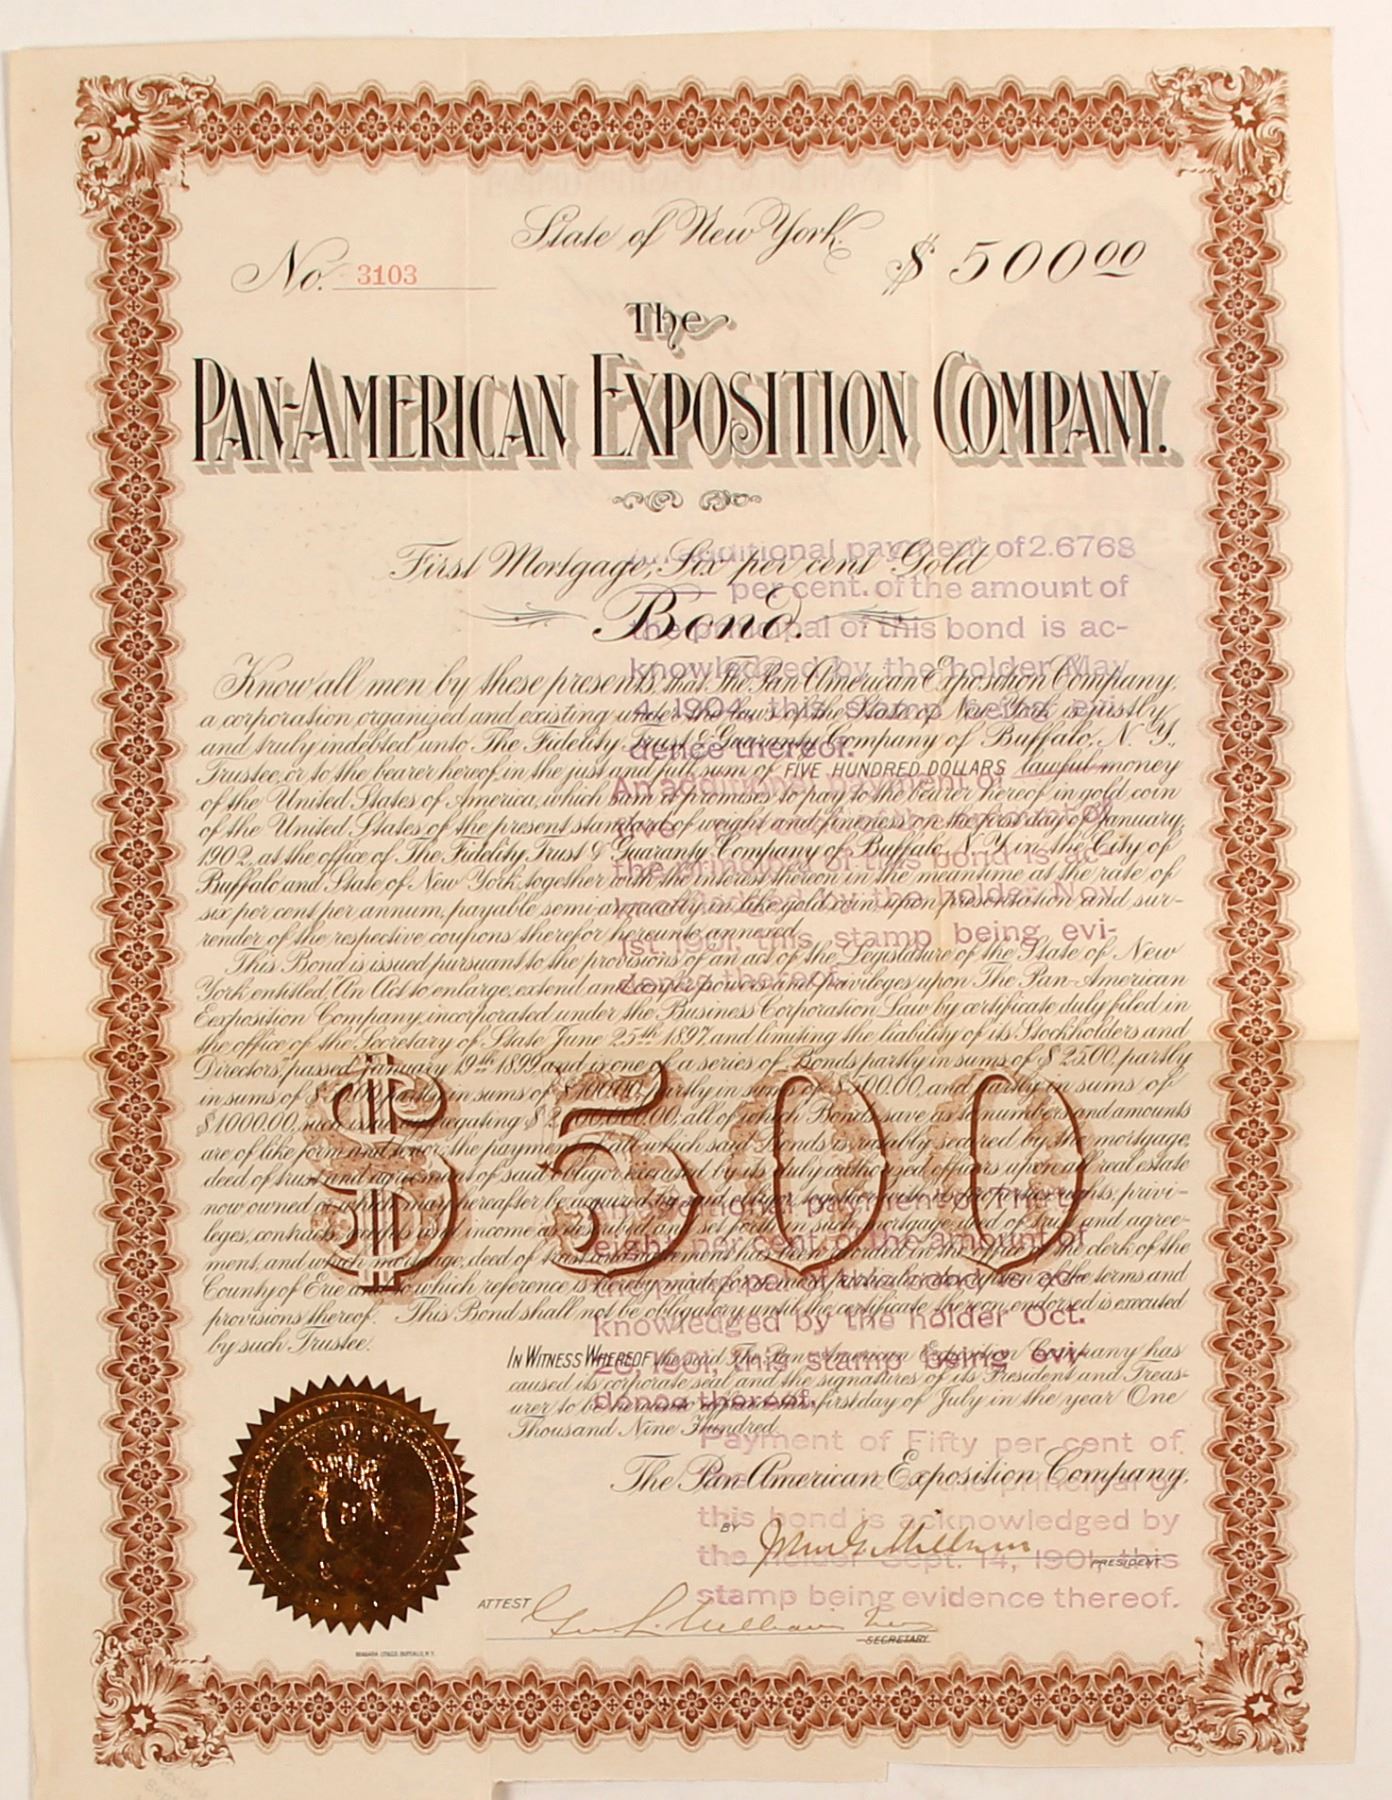 State of New York.
No. 3103
$ 500 00
The
PAN-AMERICAN EXPOSITION COMPANY.
First Mortgage, Six per cent Gold
Bond.
Know all men by these presents, that The Pan American Exposition Company,
a corporation organized and existing under the laws of the State of New York is justly
and truly indebted unto The Fidelity Trust & Guaranty Company of Buffalo, N. Y.,
Trustee, or to the bearer hereof, in the just and full sum of FIVE HUNDRED DOLLARS lawful money
of the United States of America, which sum it promises to pay to the bearer hereof in gold coin
of the United States of the present standard of weight and fineness on the first day of January,
1902, at the office of The Fidelity Trust & Guaranty Company of Buffalo, N. Y. in the City of
Buffalo and State of New York, together with the interest thereon in the meantime at the rate of
six per cent per annum, payable semi-annually in like gold coin upon presentation and sur-
render of the respective coupons therefor hereunto annexed.
This Bond is issued pursuant to the provisions of an act of the Legislature of the State of New
York entitled, An Act to enlarge, extend and confer powers and privileges upon The Pan-American
Exposition Company, incorporated under the Business Corporation Law by certificate duly filed in
the office of the Secretary of State June 25th 1897, and limiting the liability of its Stockholders and
Directors," passed January 19th 1899, and is one of a series of Bonds partly in sums of $ 25.00, partly
in sums of $ partly in sums of $ 100.00, partly in sums of $ 500.00, and partly in sums of
$1000.00, aggregating $ 2,500,000.00, all of which Bonds save as to numbers and amounts
are of like form and tenor, the payment of all which said Bonds is ratably secured by the mortgage,
deed of trust and agreement of said obligor executed by its duly authorized officers upon all real estate
now owned or which may hereafter be acquired by said obligor, together with its properties, rights, privi-
leges, contracts, income as described and set forth in such mortgage, deed of trust and agree-
ment, and which mortgage, deed of trust and agreement has been recorded in the office of the clerk of the
County of Erie and to which reference is hereby made for a more particular description of the terms and
provisions thereof. This Bond shall not be obligatory until the certificate thereon endorsed is executed
by such Trustee.
$500
IN WITNESS WHEREOF the said The Pan-American Exposition Company has
caused its corporate seal and the signatures of its President and Treas-
urer to be hereunto affixed this first day of July in the year One
Thousand Nine Hundred.
The Pan-American Exposition Company,
BY
PRESIDENT
ATTEST
SECRETARY
additional payment of 2.6768
per cent. of the amount of
the principal of this bond is ac-
knowledged by the holder May
4, 1904, this stamp being evi-
dence thereof.
An additional payment of
five per cent. of the amount of
the principal of this bond is ac-
knowledged by the holder Nov.
1st, 1901, this stamp being evi-
dence thereof.
An additional payment of Thirty
eight per cent. of the amount of
the principal of this bond is ac-
knowledged by the holder Oct.
26, 1901, this stamp being evi-
dence thereof.
Payment of Fifty per cent of
the principal of
this bond is acknowledged by
the holder Sept. 14, 1901, this
stamp being evidence thereof.